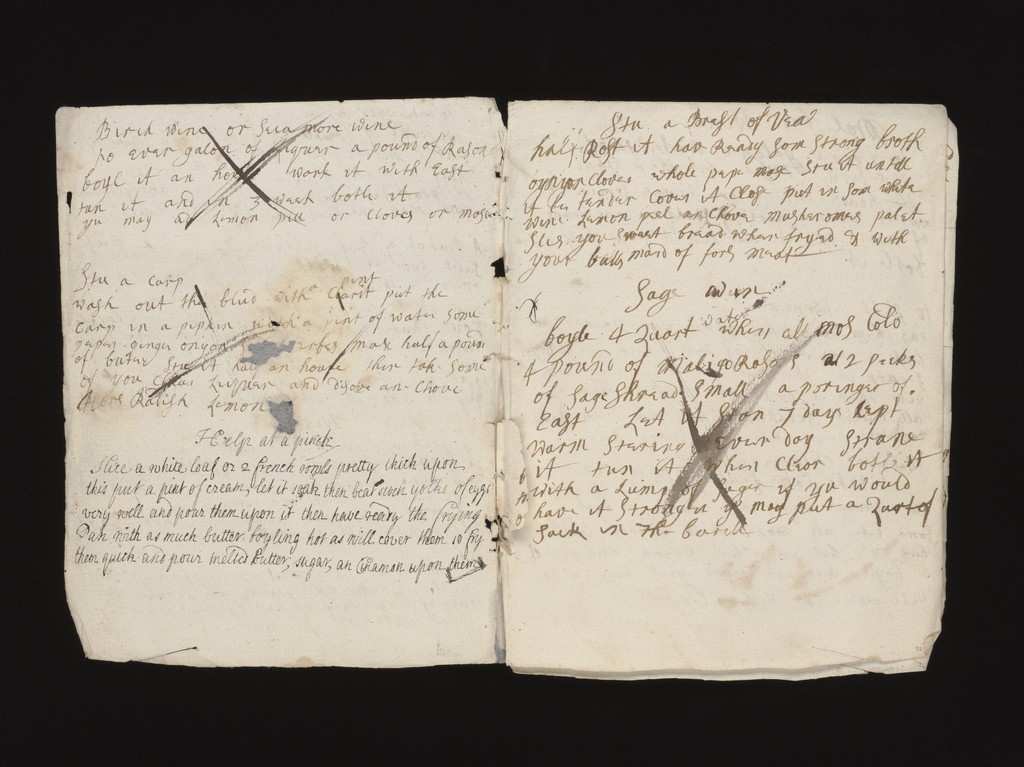 Birch wine or Sica more wine
to ever galon of liquer a pound of Rason
boyl it an hower work it with East
tun it and in 3 week botle it
you may ad Lemon pill or Cloves or
Stu a Carp
wash out the blud with a pint Clarit put the
Carp in a pipkin with a pint of water some
peper ginger onyons erbes mas half a poun
of buter Stu it half an houer then tak some
of you Clear Liquer and disove an Chove
Lemon
Help at a pinch
Slice a white loaf or 2 french rowls pretty thick upon
this put a pint of cream, let it soak then beat such yolks of eggs
very well and pour them upon it then have ready the frying
Pan with as much butter boyling hot as will cover them so fry
them quick and pour melted butter, sugar, an Cinamon upon them
Stu a Brest of Vea
half Rost it hav Ready som Strong broth
onyon Cloves whole pepe mas Stu it untill
it be tender Cover it Close put in som white
wine Lemon peel an Chove musheromes palet
Slis you sweet bread when fryed & with
your balls maid of fors meat
Sage wine
boyle 4 Quart water when all mos Cold
4 pound of Maliga Rasons 2 pecks
of Sage Shread Small a poringer of
East Let it Stan 7 days kept
warm Stering Ever day Strane
it tun it when Clear botle it
with a Lump of Suger if you would
have it Stronger you may put a Quart of
Sack in the barell